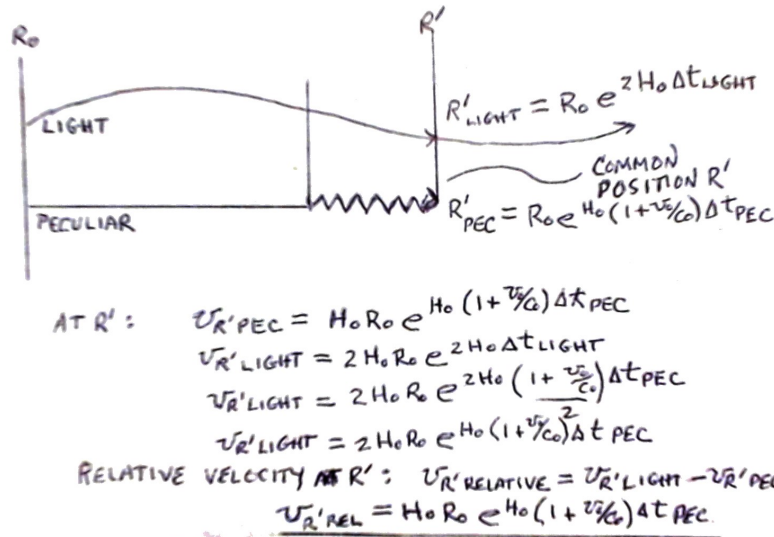 R₀
R'
LIGHT
R'LIGHT = R₀ e^2H₀ΔtLIGHT
COMMON
POSITION R'
PECULIAR
R'PEC = R₀ e^H₀(1+v₀/c₀)ΔtPEC
AT R': vR'PEC = H₀R₀ e^H₀(1+v₀/c₀)ΔtPEC
vR'LIGHT = 2H₀R₀ e^2H₀ΔtLIGHT
vR'LIGHT = 2H₀R₀ e^2H₀(1+v₀/c₀)/2 ΔtPEC
vR'LIGHT = 2H₀R₀ e^H₀(1+v₀/c₀)ΔtPEC
RELATIVE VELOCITY AT R': vR'RELATIVE = vR'LIGHT − vR'PEC
vR'REL = H₀R₀ e^H₀(1+v₀/c₀)ΔtPEC